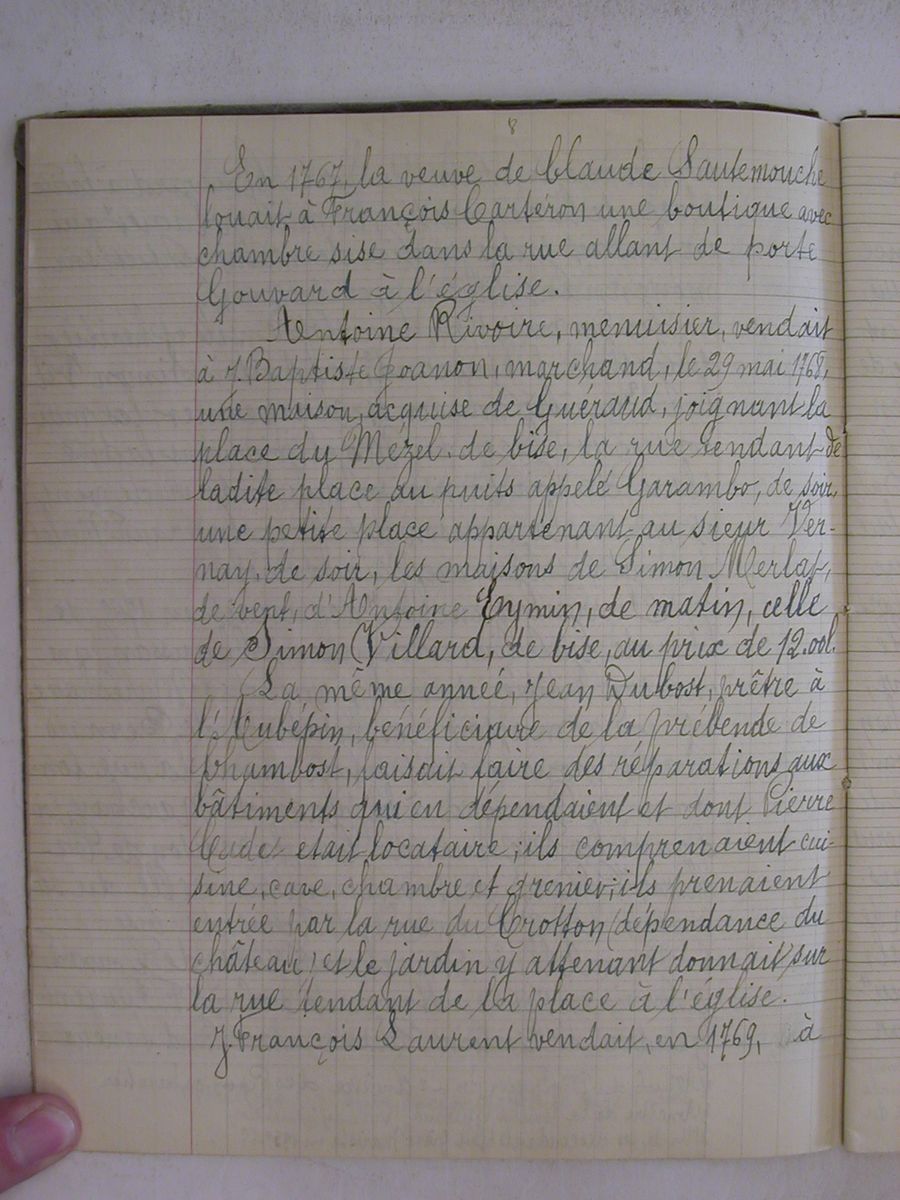 8
En 1767, la veuve de Claude Sautemouche
louait à François Carteron une boutique avec
chambre sise dans la rue allant de porte
Gouvard à l'église.
Antoine Rivoire, menuisier, vendait
à J Baptiste Joanon, marchand, le 29 mai 1768,
une maison, acquise de Guéraud, joignant la
place du Mézel, de bise, la rue tendant de
ladite place au puits appelé Garambo, de soir,
une petite place appartenant au sieur Ver-
nay, de soir, les maisons de Simon Merlat,
de vent, d'Antoine Eymin, de matin, celle
de Simon Villard, de bise, au prix de 12.00l.
La même année, Jean Dubost, prêtre à
l'Aubépin, bénéficiaire de la prébende de
Chambost, faisait faire des réparations aux
bâtiments qui en dépendaient et dont Pierre
était locataire; ils comprenaient cui-
sine, cave, chambre et grenier; ils prenaient
entrée par la rue du Crotton (dépendance du
château) et le jardin y attenant donnait sur
la rue tendant de la place à l'église.
J. François Laurent vendait, en 1769, à